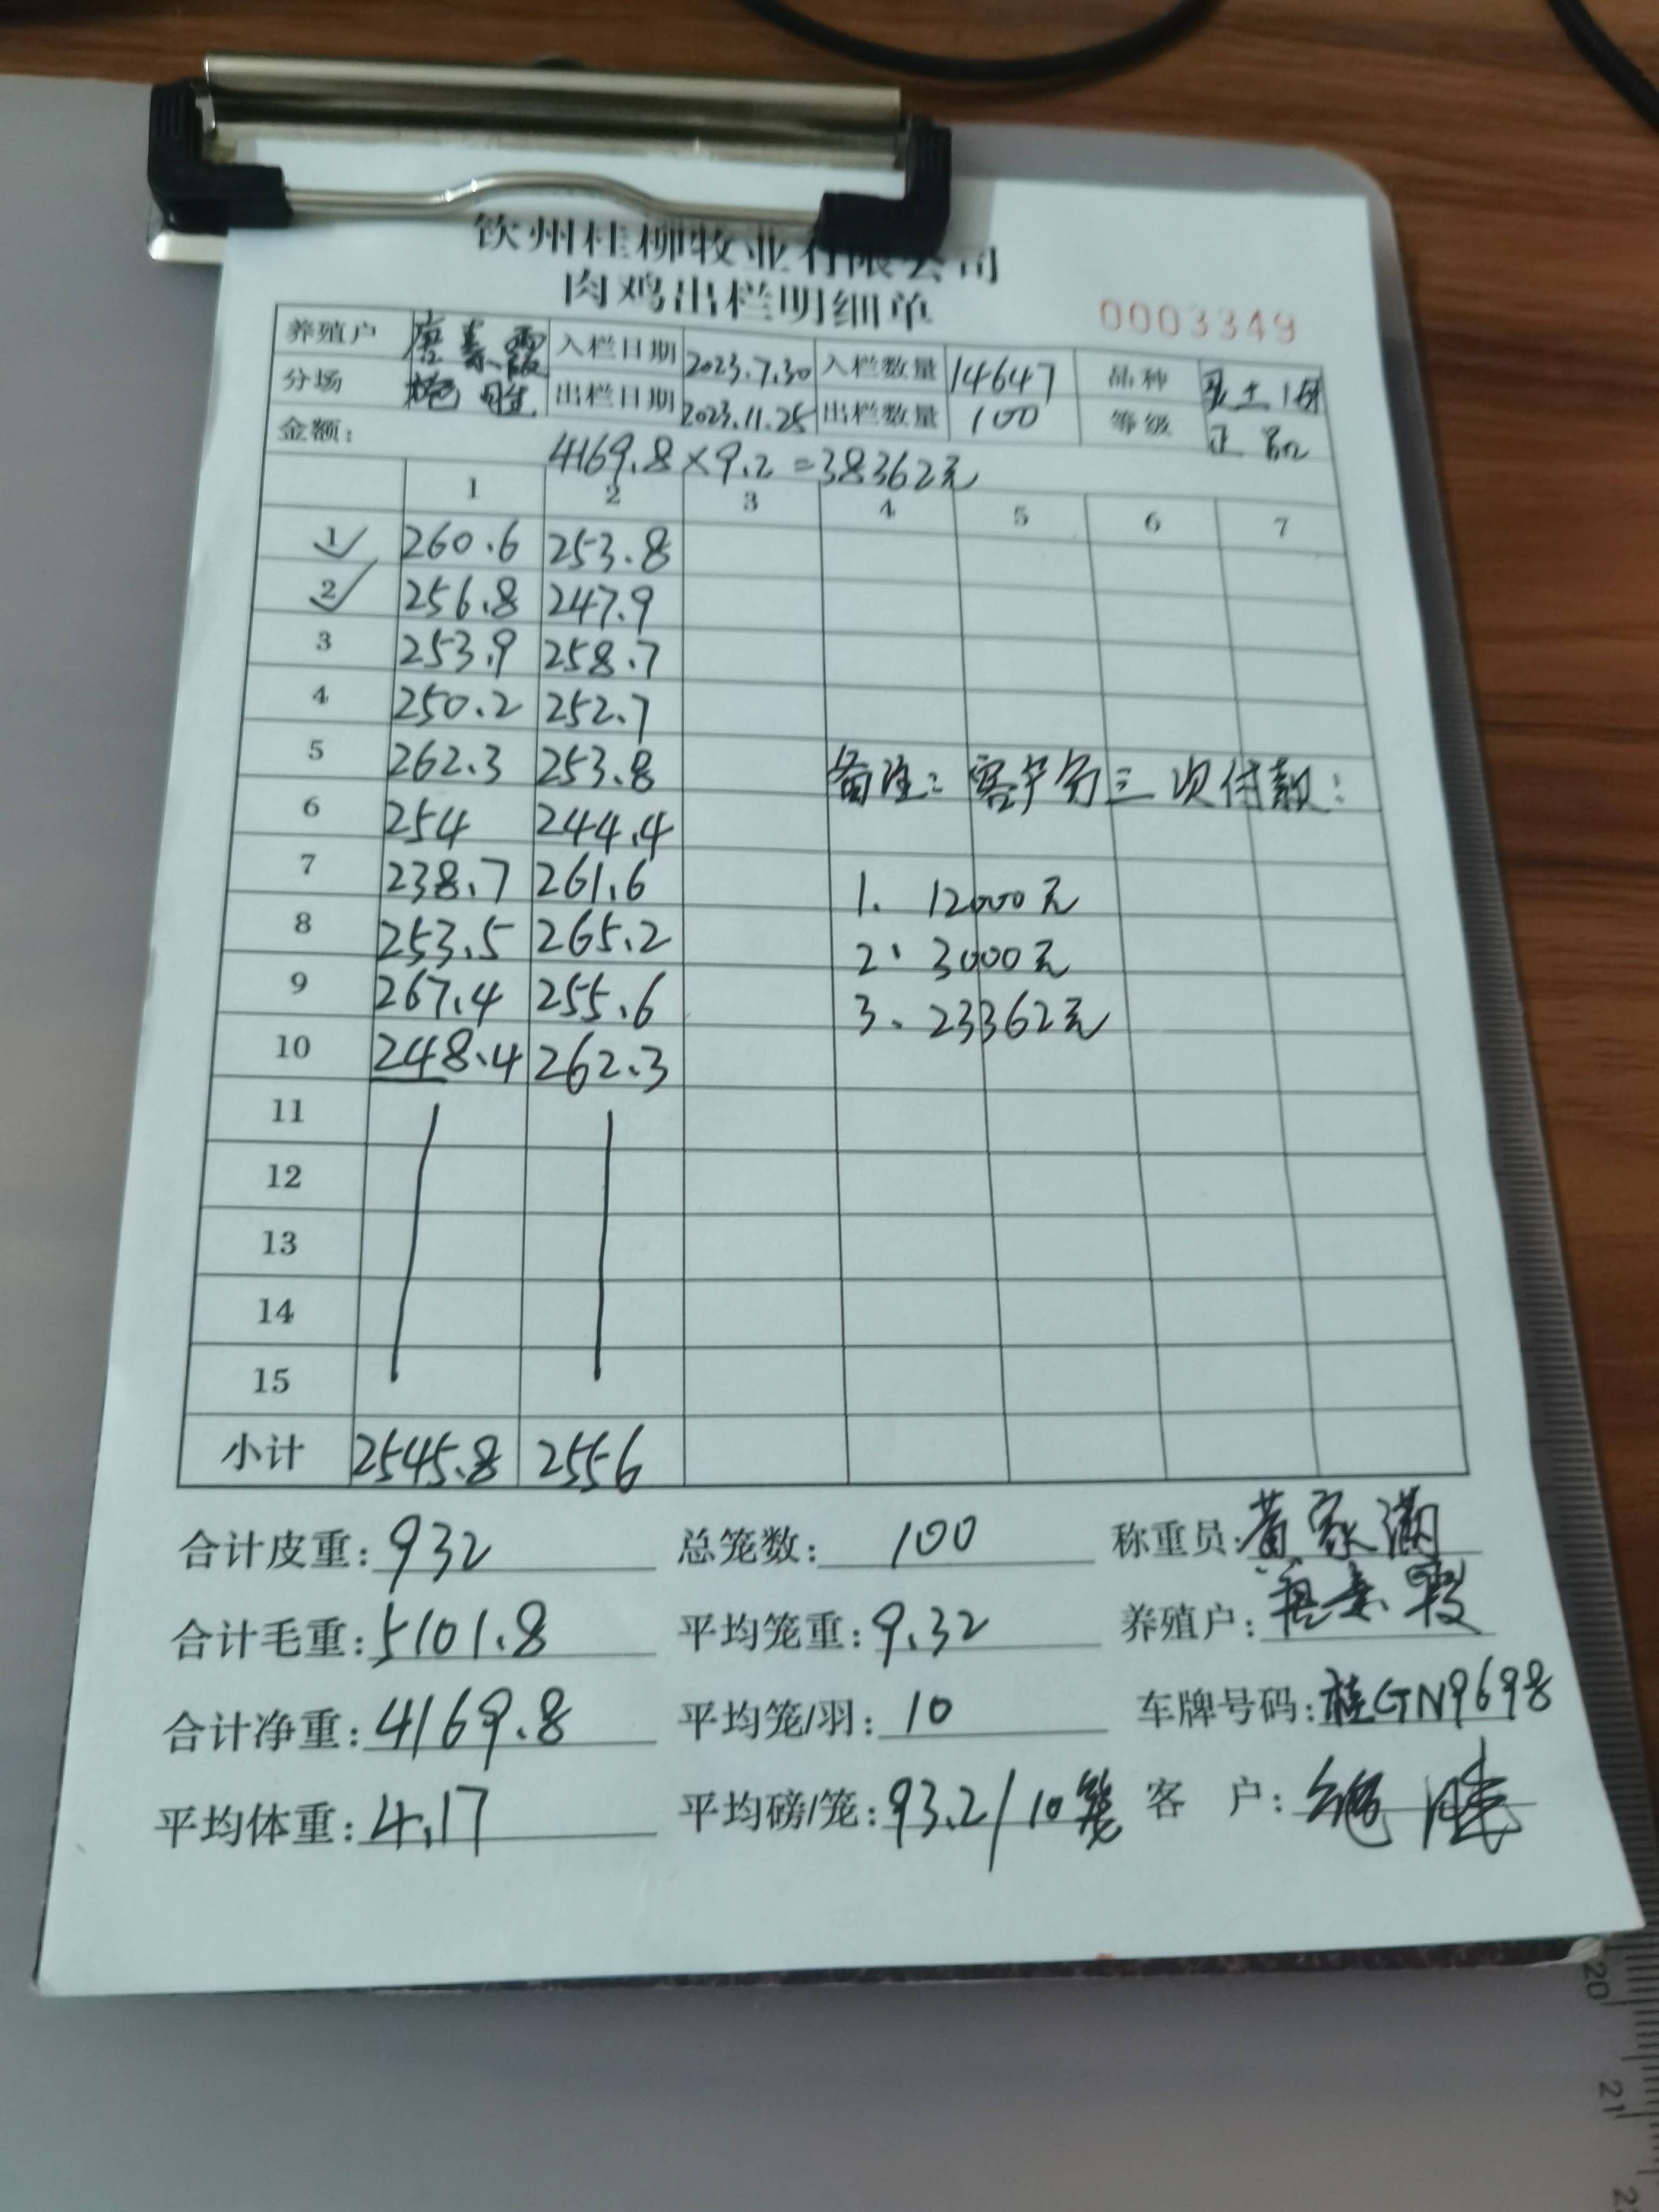 钦州桂柳牧业有限公司
肉鸡出栏明细单
0003349
养殖户 唐素霞 入栏日期 2023.7.30 入栏数量 14647 品种 土1号
分场 出栏日期 2023.11.25 出栏数量 100 等级 正品
金额: 4169.8×9.2=38362元
1 2 3 4 5 6 7
1 260.6 253.8
2 256.8 247.9
3 253.9 258.7
4 250.2 252.7
5 262.3 253.8 备注:客户分三次付款:
6 254 244.4
7 238.7 261.6 1. 12000元
8 253.5 265.2 2. 3000元
9 267.4 255.6 3. 23362元
10 248.4 262.3
11
12
13
14
15
小计 2545.8 2556
合计皮重: 932 总笼数: 100 称重员: 黄家满
合计毛重: 5101.8 平均笼重: 9.32 养殖户: 唐素霞
合计净重: 4169.8 平均笼/羽: 10 车牌号码: 桂GN9698
平均体重: 4.17 平均磅/笼: 93.2/10笼 客 户:
20
21